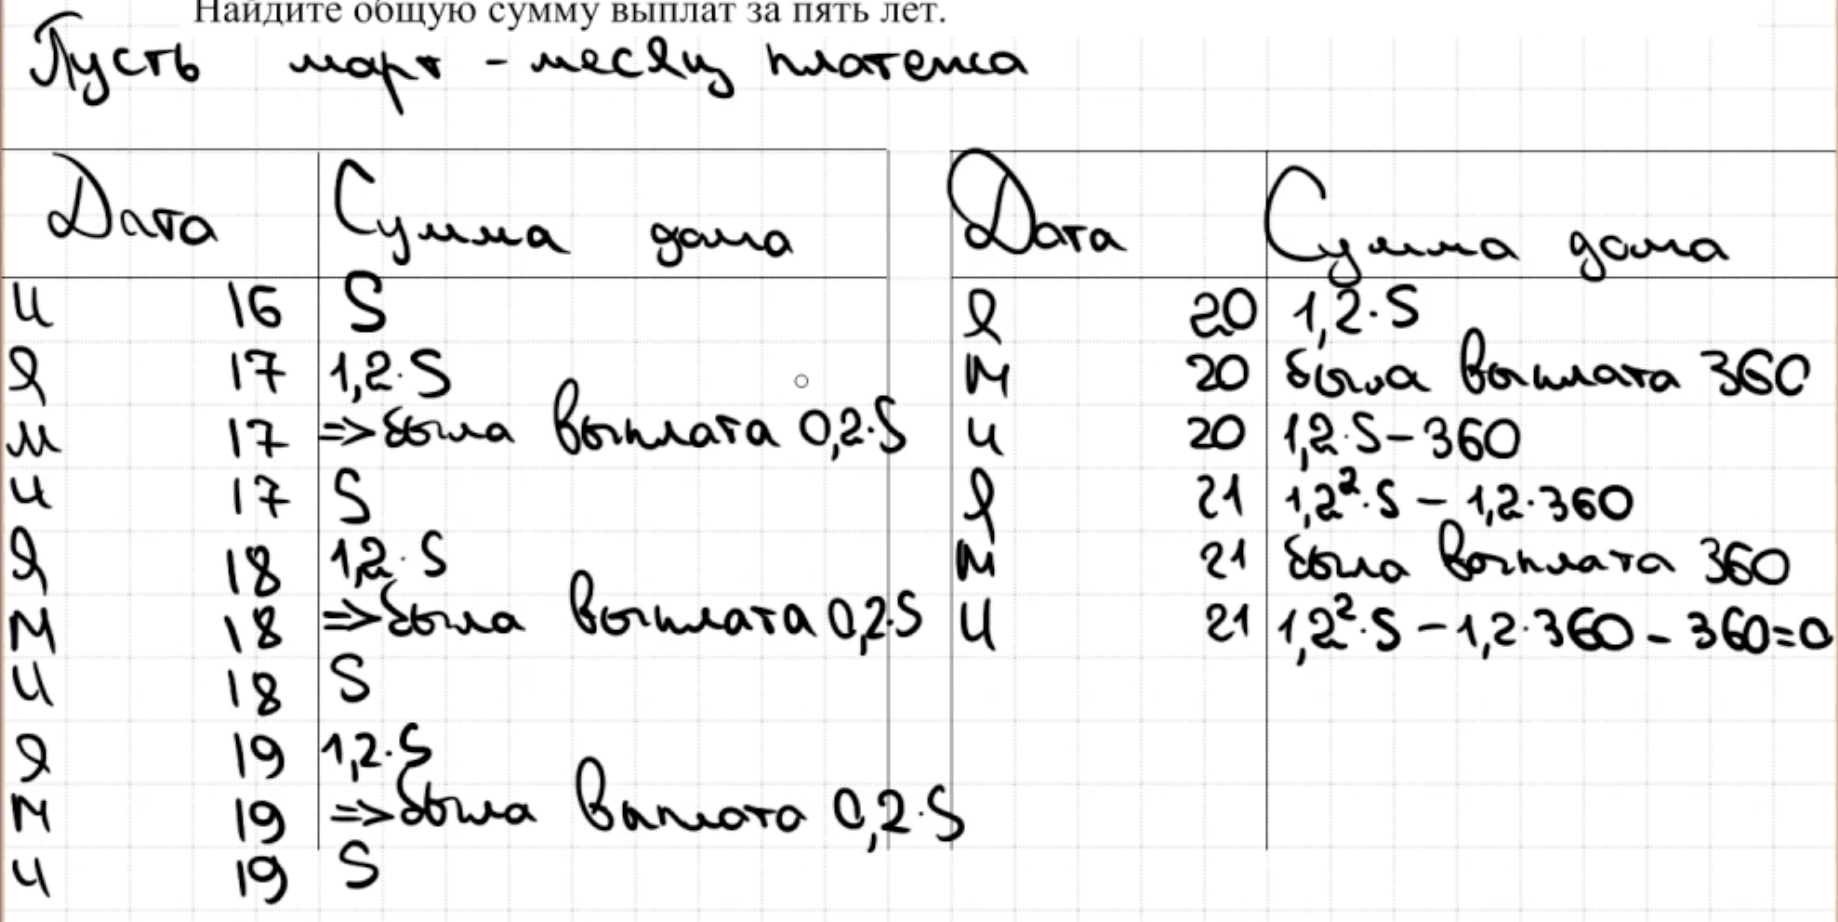 Найдите общую сумму выплат за пять лет.
Пусть март - месяц платежа
Дата Сумма долга
И 16 S
Я 17 1,2·S
М 17 => была выплата 0,2·S
И 17 S
Я 18 1,2·S
М 18 => была выплата 0,2·S
И 18 S
Я 19 1,2·S
М 19 => была выплата 0,2·S
И 19 S
Дата Сумма долга
Я 20 1,2·S
М 20 была выплата 360
И 20 1,2·S-360
Я 21 1,2²·S - 1,2·360
М 21 была выплата 360
И 21 1,2²·S - 1,2·360 - 360=0